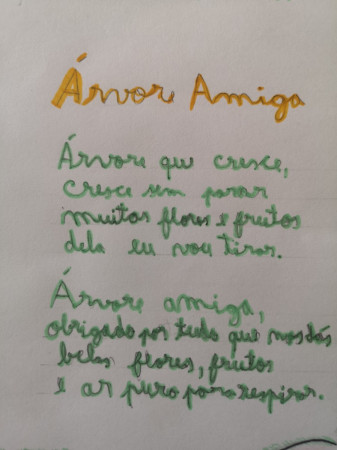 Árvore Amiga
Árvore que cresce,
cresce sem parar
muitas flores e frutos
dela eu vou tirar.
Árvore amiga,
obrigado por tudo que nos dás
belas flores, frutos
e ar puro para respirar.